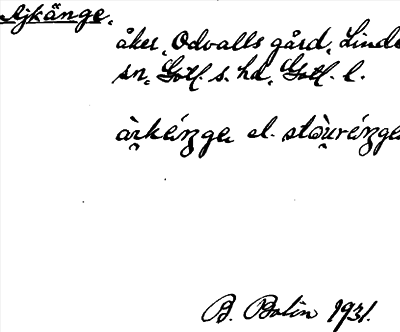 Ajkänge.
åker, Odvalls gård, Linde
sn, Gotl. s. hd, Gotl. l.
el.
B. Bolin 1931.